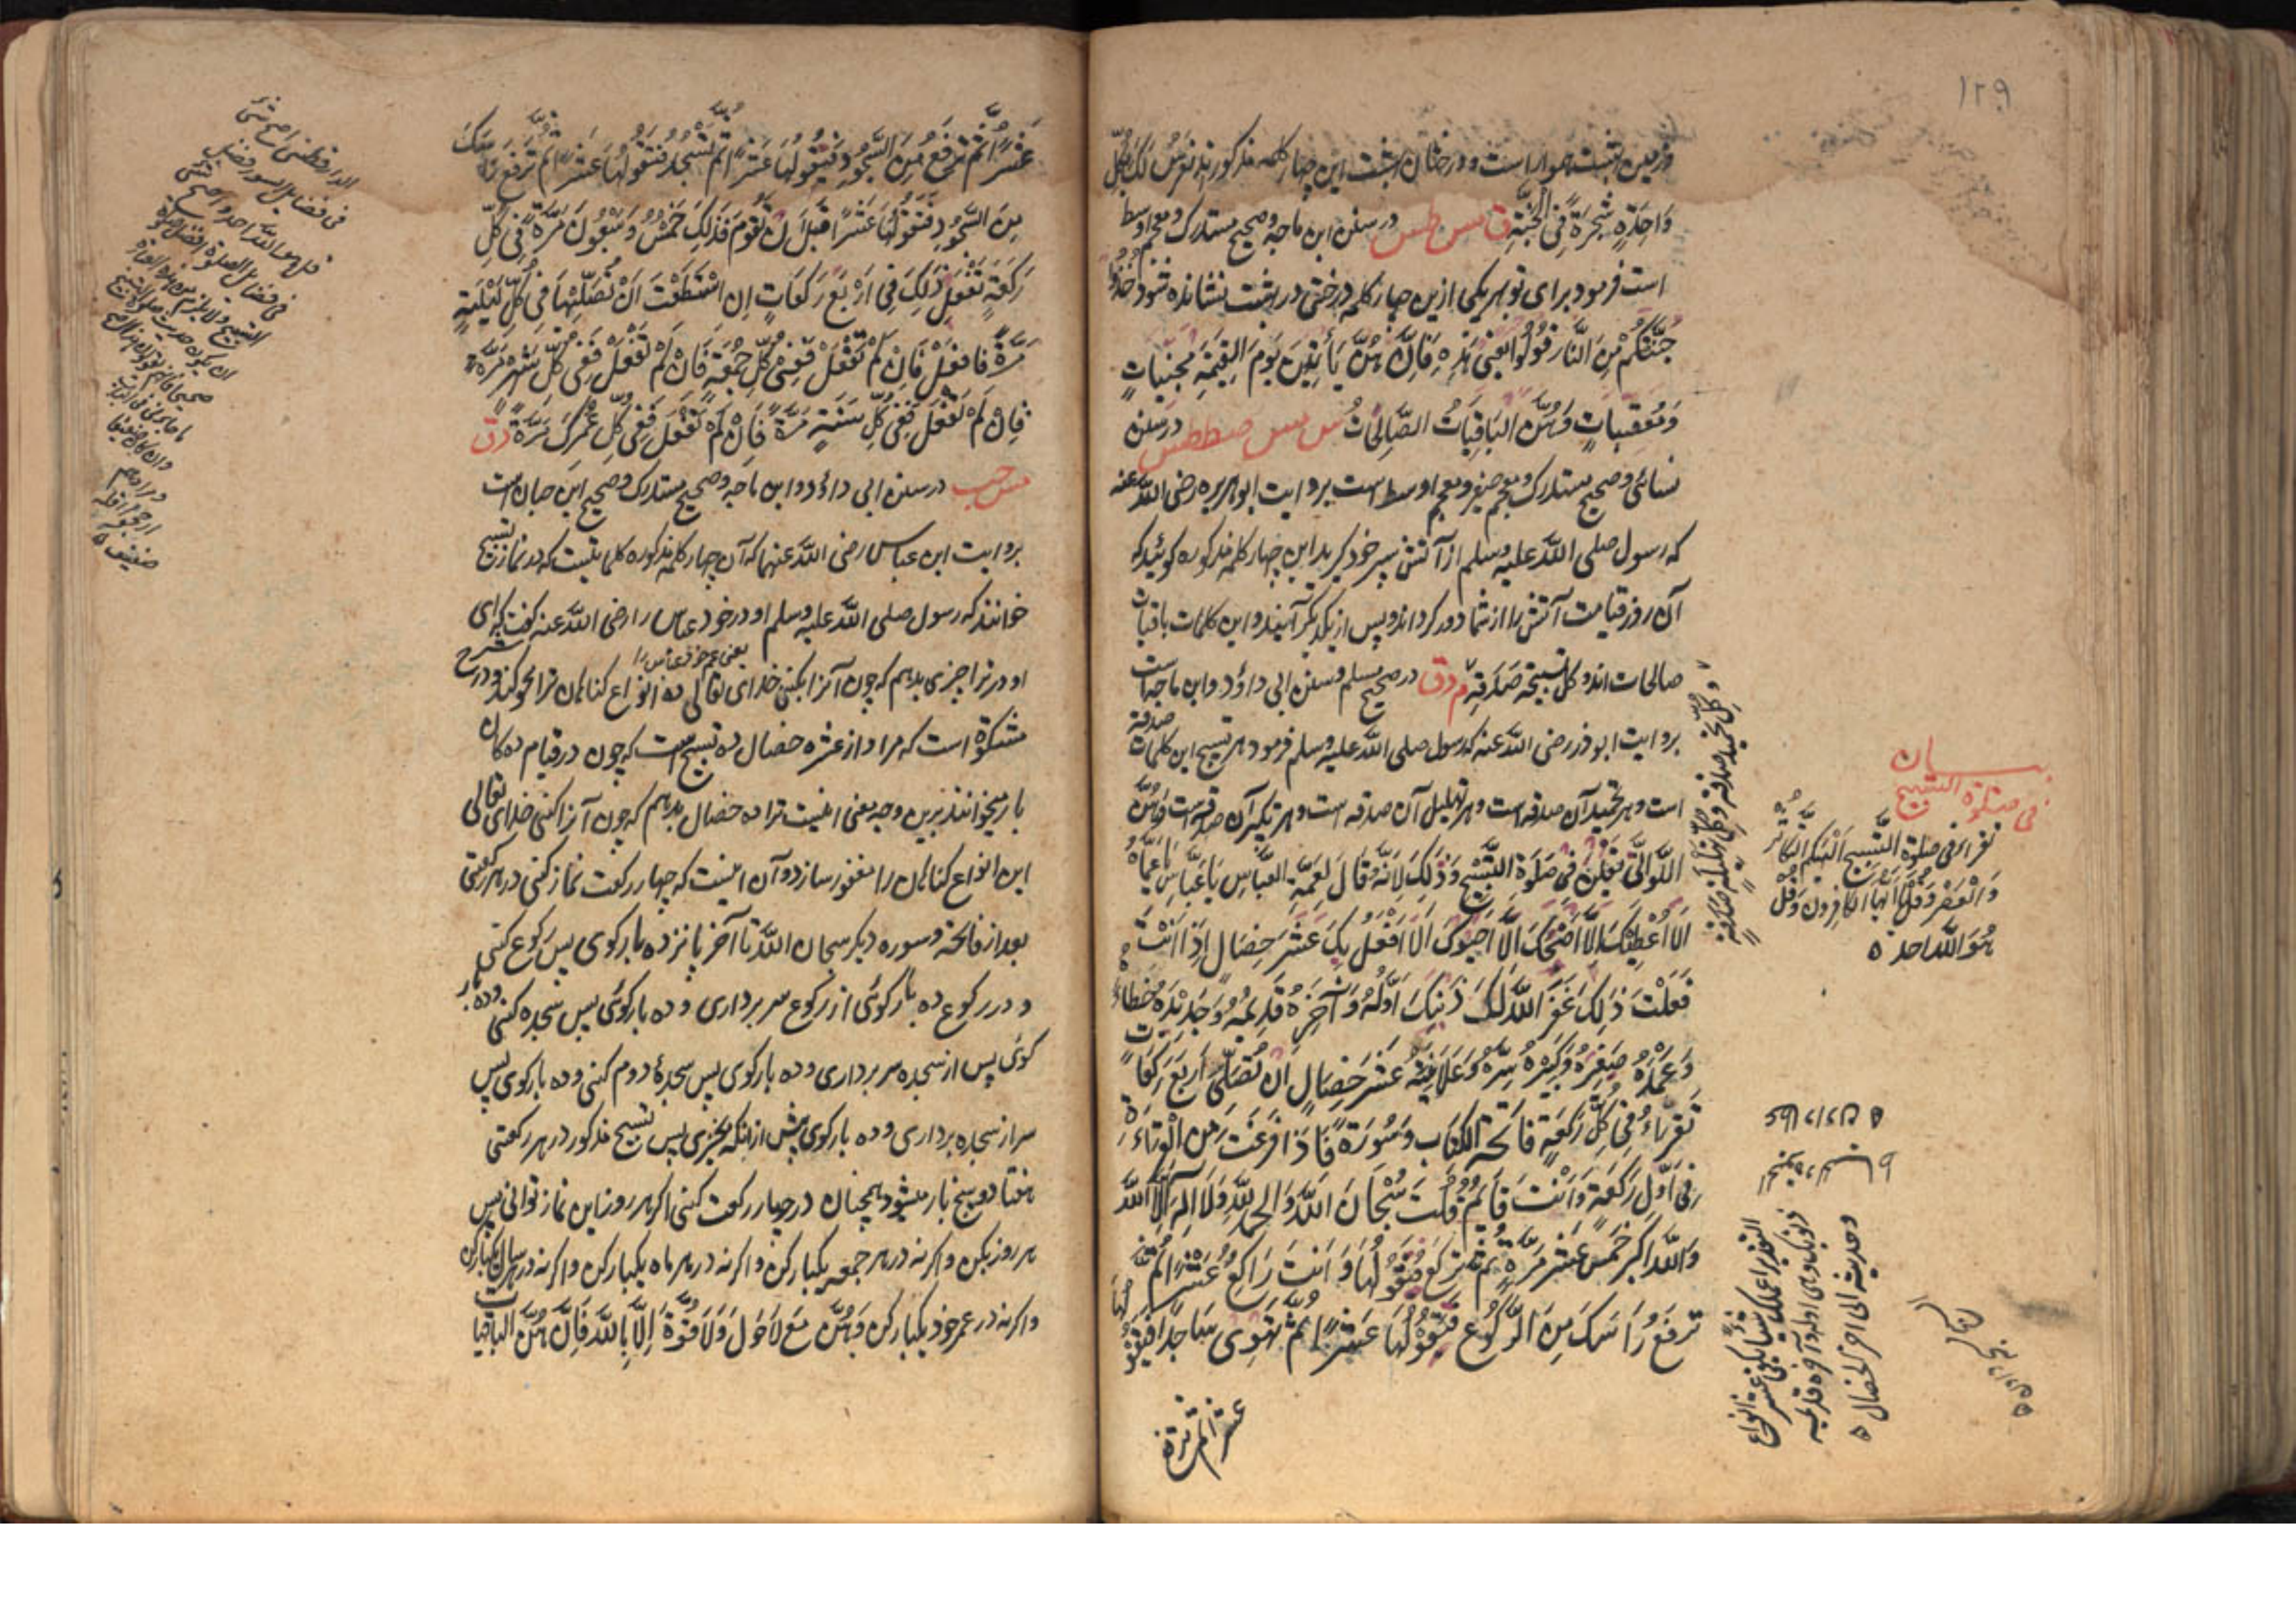 ۱۲۹
وزمین بهشت هموار است و درختان بهشت این چهار کلمه مذکور اند تُغرسُ لَکَ بِکُلِّ
وَاحِدَةٍ شَجَرَةٌ فِی الجَنَّةِ ق مس طس در سنن ابن ماجه وصحیح مستدرک ومعجم اوسط
است فرمود برای تو بهر یکی ازین چهار کلمه درختی در بهشت نشانده شود خُذُوا
جُنَّتَکُم مِنَ النَّارِ قُولُوا یَعنِی هٰذِهِ فَاِنَّ هُنَّ یَأتِینَ یَومَ القِیٰمَةِ مُجَنِّبَاتٍ
وَمُعَقِّبَاتٍ وَهُنَّ البَاقِیَاتُ الصَّالِحَاتُ س مس صط طس در سنن
نسائی وصحیح مستدرک ومعجم صغیر ومعجم اوسط است بروایت ابوهریره رضی اللّه عنه
که رسول صلی اللّه علیه وسلم از آتش سپر خود گیرید این چهار کلمه مذکوره گوئید که
آن روز قیامت آتش را از شما دور گردانند و پس از یکدیگر آیند و این کلمات باقیات
صالحات اند و کل تسبیحة صَدَقة م د ق در صحیح مسلم وسنن ابی داؤد وابن ماجه است
بروایت ابوذر رضی اللّه عنه که رسول صلی اللّه علیه وسلم فرمود هر تسبیح این کلمات صدقه
است و هر تحمید آن صدقه است و هر تهلیل آن صدقه است و هر تکبیر آن صدقه است وَهُنَّ
اللَّوَاتِی یُقَلنَ فِی صَلٰوةِ التَّسبِیحِ وَذٰلِکَ لِاَنَّهُ قَالَ لِعَمِّهِ العَبَّاسِ یَا عَبَّاسُ یَا عَمَّاهُ
اَلَا اُعطِیکَ اَلَا اَمنَحُکَ اَلَا اَحبُوکَ اَلَا اَفعَلُ بِکَ عَشرَ خِصَالٍ اِذَا اَنتَ
فَعَلتَ ذٰلِکَ غَفَرَ اللّهُ لَکَ ذَنبَکَ اَوَّلَهُ وَآخِرَهُ قَدِیمَهُ وَجَدِیدَهُ خَطَاءَهُ
وَعَمدَهُ صَغِیرَهُ وَکَبِیرَهُ سِرَّهُ وَعَلَانِیَتَهُ عَشرَ خِصَالٍ اَن تُصَلِّیَ اَربَعَ رَکَعَاتٍ
تَقرَاءُ فِی کُلِّ رَکعَةٍ فَاتِحَةَ الکِتَابِ وَسُورَةً فَاِذَا فَرَغتَ مِنَ القِرَاءَةِ
فِی اَوَّلِ رَکعَةٍ وَاَنتَ قَائِمٌ قُلتَ سُبحَانَ اللّهِ وَالحمدُ لِلّهِ وَلَا اِلٰهَ اِلَّا اللّهُ
وَاللّهُ اکبر خَمسَ عَشرَ مَرَّةً ثُمَّ تَرکَعُ فَتَقُولُهَا وَاَنتَ رَاکِعٌ عَشرًا ثُمَّ
تَرفَعُ رَاسَکَ مِنَ الرُّکُوعِ فَتَقُولُهَا عَشرًا ثُمَّ تَهوِی سَاجِدًا فَتَقُو لُهَا
عشرا ثم ترفع
وکل تحمیدة صدقة وکل تهلیلة صدقة
بیان
فی صلوة التسبیح
تقراء فی صلوة التسبیح اَلهٰیکُمُ التَّکَاثُر
وَالعَصر وَقُل یا ایها الکافرون وَقُل
هُوَ اللّه احد ۵
عَشرًا ثُمَّ تَرفَعُ مِنَ السُّجُودِ فَتَقُولُهَا عَشرًا ثُمَّ تَسجُدُ فَتَقُولُهَا عَشرًا ثُمَّ تَرفَعُ رَاسَکَ
مِنَ السُّجُودِ فَتَقُولُهَا عَشرًا قَبلَ اَن تَقُومَ فَذٰلِکَ خَمسٌ وَسَبعُونَ مَرَّةً فِی کُلِّ
رَکعَةٍ تَفعَلُ ذٰلِکَ فِی اَربَعِ رَکَعَاتٍ اِنِ استَطَعتَ اَن تُصَلِّیَهَا فِی کُلِّ لَیلَةٍ
مَرَّةً فَافعَل فَاِن لَم تَفعَل فَفِی کُلِّ جُمُعَةٍ فَاِن لَم تَفعَل فَفِی کُلِّ شَهرٍ مَرَّةً
فَاِن لَم تَفعَل فَفِی کُلِّ سَنَةٍ مَرَّةً فَاِن لَم تَفعَل فَفِی کُلِّ عُمرِکَ مَرَّةً د ق
مس حب در سنن ابی داؤد وابن ماجه وصحیح مستدرک وصحیح ابن حبان است
بروایت ابن عباس رضی اللّه عنهما که آن چهار کلمه مذکوره کلماتیست که در نماز تسبیح
خوانند که رسول صلی اللّه علیه وسلم اودر خود عباس را رضی اللّه عنه گفت که ای
یعنی عم خود عباس را
اودر ترا چیزی بدهم که چون آنرا بکنی خدای تعالی ده انواع گناهان ترا محو کند و در شرح
مشکوة است که مراد از عشره خصال ده تسبیح است که چون در قیام ده کان
بار میخوانند برین وجه معنی اینست ترا ده خصال بدهم که چون آنرا کنی خدای تعالی
این انواع گناهان را مغفور سازد و آن اینست که چهار رکعت نماز کنی در هر رکعتی
بعد از فاتحه وسوره دیگر سبحان اللّه تا آخر پانزده بار گوی پس رکوع کنی
و در رکوع ده بار گوئی از رکوع سر برداری و ده بار گوئی پس سجده کنی وده بار
گوئی پس از سجده سر برداری و ده بار گوی پس سجدهٔ دوم کنی و ده بار گوی پس
سر از سجده برداری و ده بار گوی پیش از آنکه بخیزی پس تسبیح مذکور در هر رکعتی
هفتاد و پنج بار میشود همچنان در چهار رکعت کنی اگر هر روز این نماز توانی پس
هر روز بکن و اگر نه در هر جمعه یکبار کن و اگر نه در هر ماه یکبار کن و اگر نه در هر سال یکبار کن
و اگر نه در عمر خود یکبار کن وَهُنَّ مَعَ لَا حَولَ وَلَا قُوَّةَ اِلَّا بِاللّهِ فَاِنَّ هُنَّ الباقیات
الدار قطنی اصح شئ
فی فضایل السور فضل
قل هو اللّه احد واصح شئ
فی فضایل الصلوة فضل صلوة
التسبیح